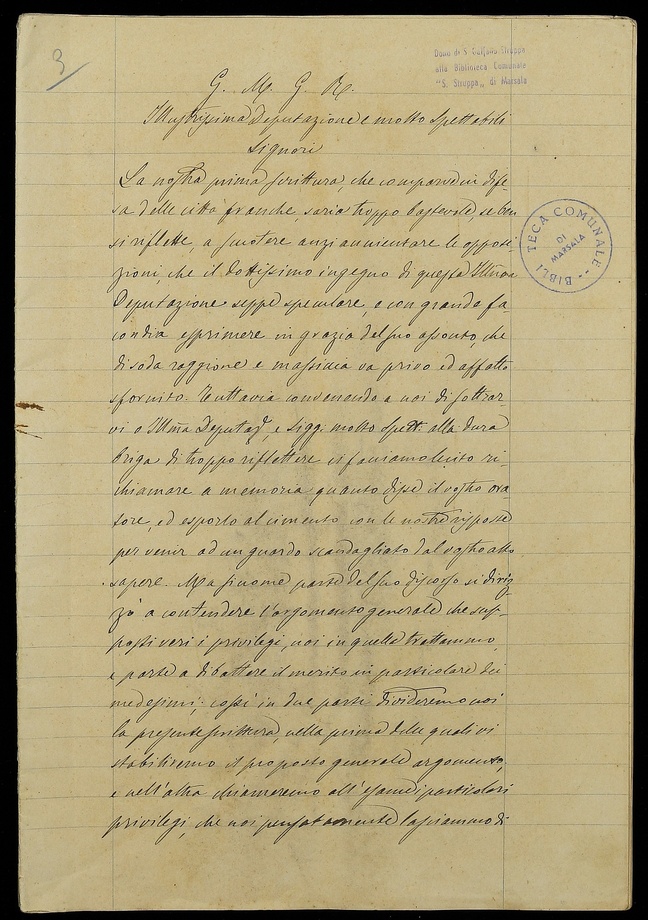 3
Dono di S. Gaspare Struppa
alla Biblioteca Comunale
"S. Struppa" di Marsala
G. M. G. R.
Illustrissima Deputazione e molto Spettabili
Signori
La nostra prima scrittura, che comparve in dife-
sa delle città franche, saria troppo bastevole, se ben
si riflette, a scuotere anzi annientare le opposi-
zioni, che il dottissimo ingegno di questa Illma
Deputazione seppe speculare, e con grande fa-
condia esprimere in grazia del suo assonto, che
di soda raggione e massiccia va privo ed affatto
sfornito. Tuttavia convenendo a noi di sottrar
vi o Illma Deputaze, e Sigg. molto Spett. alla dura
briga di troppo riflettere ci facciamo lecito ri-
chiamare a memoria quanto disse il vostro ora-
tore, ed esporlo al cimento con le nostre risposte
per venir ad un guardo scandagliato dal vostro alto
sapere. Ma siccome parte del suo discorso si diriz-
zò a contendere l'argomento generale che sup-
posti veri i privilegi, noi in quella trattammo,
e parte a dibattere il merito in particolare dei
medesimi; cossì in due parti divideremo noi
la presente scrittura, nella prima delle quali vi
stabiliremo il proposto generale argomento,
e nell'altra chiameremo all'esame di particolari
privilegi, che noi pensatamente lasciammo di
BIBLIOTECA COMUNALE
DI
MARSALA